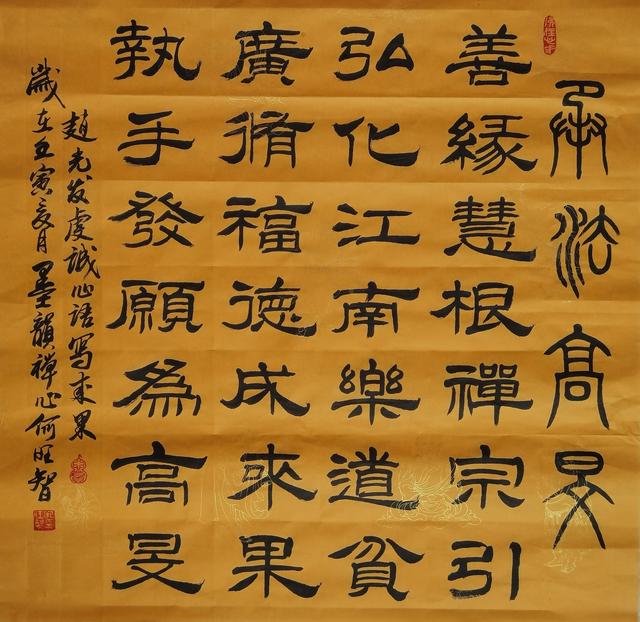 承法高旻
善緣慧根禪宗引
弘化江南樂道貧
廣脩福德成來果
執手發願為高旻
趙光发虔誠心語寫來果
歲在五寅亥月墨韻禪心何旺智